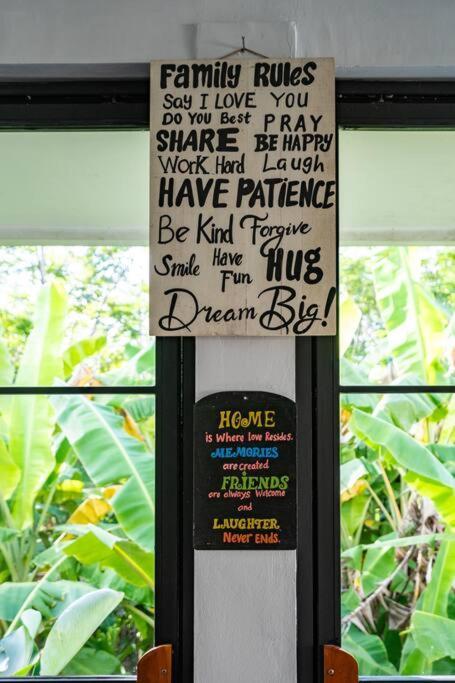 Family RULES
Say I LOVE YOU
DO YOU Best PRAY
SHARE BE HAPPY
WORK Hard Laugh
HAVE PATIENCE
Be Kind Forgive
Smile Have Fun HUG
Dream Big!
HOME
is Where love Resides.
MEMORIES
are created
FRIENDS
are always Welcome
and
LAUGHTER
Never ENDS.